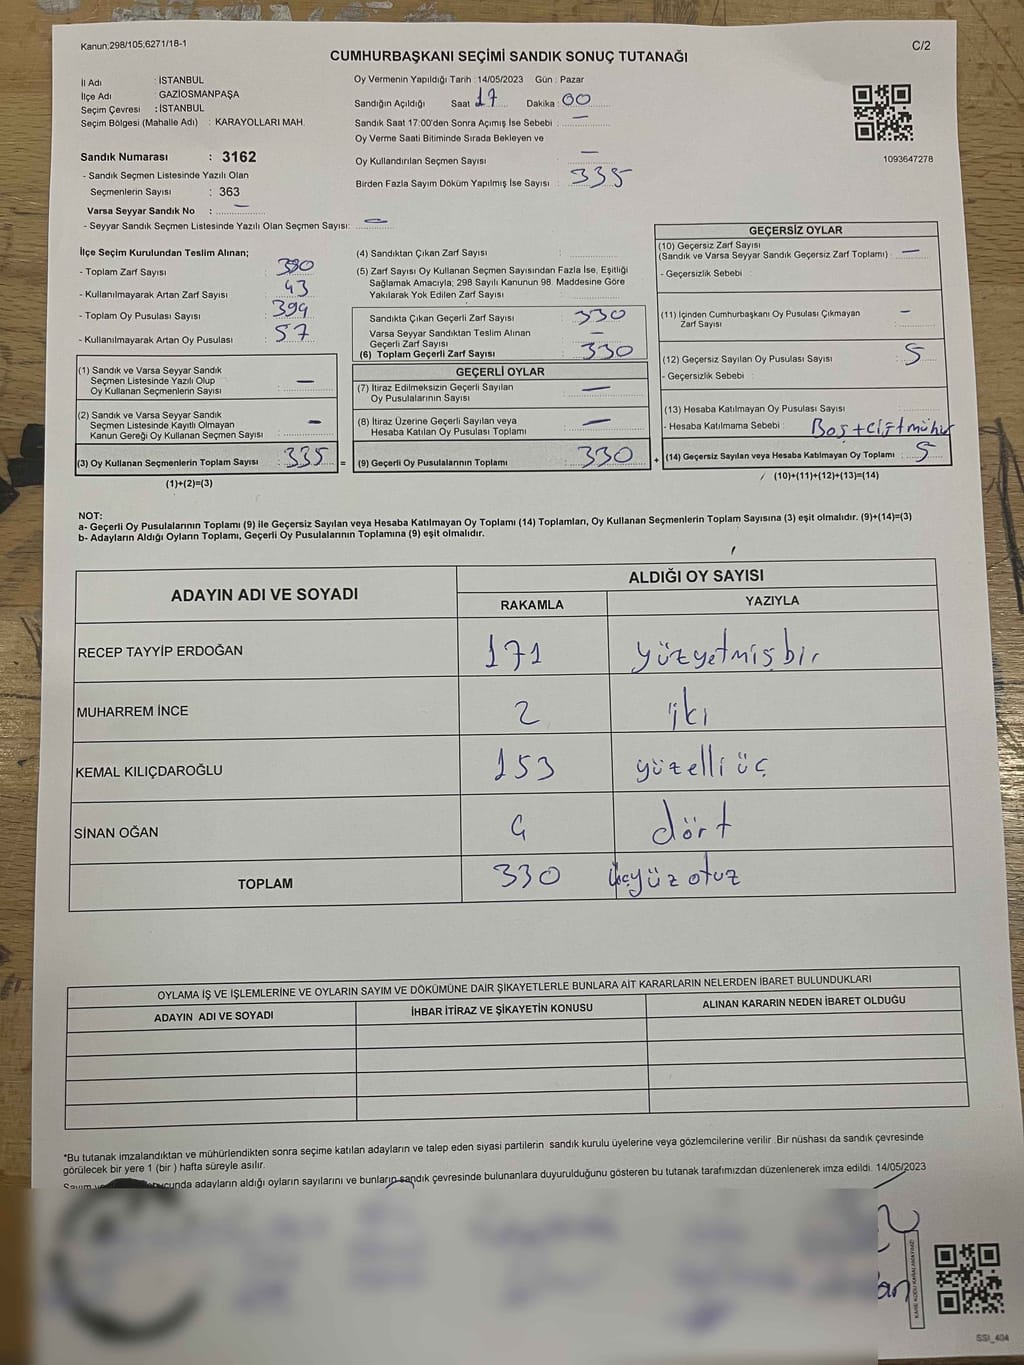 Kanun;298/105;6271/18-1
C/2
CUMHURBAŞKANI SEÇİMİ SANDIK SONUÇ TUTANAĞI
İl Adı : İSTANBUL
İlçe Adı : GAZİOSMANPAŞA
Seçim Çevresi : İSTANBUL
Seçim Bölgesi (Mahalle Adı) : KARAYOLLARI MAH.
Sandık Numarası : 3162
- Sandık Seçmen Listesinde Yazılı Olan
Seçmenlerin Sayısı : 363
Varsa Seyyar Sandık No : –
- Seyyar Sandık Seçmen Listesinde Yazılı Olan Seçmen Sayısı: –
Oy Vermenin Yapıldığı Tarih : 14/05/2023 Gün : Pazar
Sandığın Açıldığı Saat 17 Dakika : 00
Sandık Saat 17:00'den Sonra Açımış İse Sebebi : –
Oy Verme Saati Bitiminde Sırada Bekleyen ve
Oy Kullandırılan Seçmen Sayısı –
Birden Fazla Sayım Döküm Yapılmış İse Sayısı : 335
1093647278
İlçe Seçim Kurulundan Teslim Alınan;
- Toplam Zarf Sayısı : 380
- Kullanılmayarak Artan Zarf Sayısı : 43
- Toplam Oy Pusulası Sayısı : 394
- Kullanılmayarak Artan Oy Pusulası : 57
(1) Sandık ve Varsa Seyyar Sandık
Seçmen Listesinde Yazılı Olup
Oy Kullanan Seçmenlerin Sayısı : –
(2) Sandık ve Varsa Seyyar Sandık
Seçmen Listesinde Kayıtlı Olmayan
Kanun Gereği Oy Kullanan Seçmen Sayısı : –
(3) Oy Kullanan Seçmenlerin Toplam Sayısı : 335
(1)+(2)=(3)
=
(4) Sandıktan Çıkan Zarf Sayısı :
(5) Zarf Sayısı Oy Kullanan Seçmen Sayısından Fazla İse, Eşitliği
Sağlamak Amacıyla; 298 Sayılı Kanunun 98. Maddesine Göre
Yakılarak Yok Edilen Zarf Sayısı :
Sandıkta Çıkan Geçerli Zarf Sayısı : 330
Varsa Seyyar Sandıktan Teslim Alınan
Geçerli Zarf Sayısı : –
(6) Toplam Geçerli Zarf Sayısı : 330
GEÇERLİ OYLAR
(7) İtiraz Edilmeksizin Geçerli Sayılan
Oy Pusulalarının Sayısı : –
(8) İtiraz Üzerine Geçerli Sayılan veya
Hesaba Katılan Oy Pusulası Toplamı : –
(9) Geçerli Oy Pusulalarının Toplamı : 330
+
GEÇERSİZ OYLAR
(10) Geçersiz Zarf Sayısı
(Sandık ve Varsa Seyyar Sandık Geçersiz Zarf Toplamı) : –
- Geçersizlik Sebebi :
(11) İçinden Cumhurbaşkanı Oy Pusulası Çıkmayan
Zarf Sayısı : –
(12) Geçersiz Sayılan Oy Pusulası Sayısı : 5
- Geçersizlik Sebebi :
(13) Hesaba Katılmayan Oy Pusulası Sayısı :
- Hesaba Katılmama Sebebi : Boş+çiftmühür
(14) Geçersiz Sayılan veya Hesaba Katılmayan Oy Toplamı : 5
(10)+(11)+(12)+(13)=(14)
NOT:
a- Geçerli Oy Pusulalarının Toplamı (9) ile Geçersiz Sayılan veya Hesaba Katılmayan Oy Toplamı (14) Toplamları, Oy Kullanan Seçmenlerin Toplam Sayısına (3) eşit olmalıdır. (9)+(14)=(3)
b- Adayların Aldığı Oyların Toplamı, Geçerli Oy Pusulalarının Toplamına (9) eşit olmalıdır.
ADAYIN ADI VE SOYADI
ALDIĞI OY SAYISI
RAKAMLA YAZIYLA
RECEP TAYYİP ERDOĞAN 171 yüzyetmişbir
MUHARREM İNCE 2 iki
KEMAL KILIÇDAROĞLU 153 yüzelli üç
SİNAN OĞAN 4 dört
TOPLAM 330 üçyüz otuz
OYLAMA İŞ VE İŞLEMLERİNE VE OYLARIN SAYIM VE DÖKÜMÜNE DAİR ŞİKAYETLERLE BUNLARA AİT KARARLARIN NELERDEN İBARET BULUNDUKLARI
ADAYIN ADI VE SOYADI İHBAR İTİRAZ VE ŞİKAYETİN KONUSU ALINAN KARARIN NEDEN İBARET OLDUĞU
*Bu tutanak imzalandıktan ve mühürlendikten sonra seçime katılan adayların ve talep eden siyasi partilerin sandık kurulu üyelerine veya gözlemcilerine verilir .Bir nüshası da sandık çevresinde
görülecek bir yere 1 (bir ) hafta süreyle asılır.
adayların aldığı oyların sayılarını ve bunların sandık çevresinde bulunanlara duyurulduğunu gösteren bu tutanak tarafımızdan düzenlenerek imza edildi. 14/05/2023
KARE KODU KARALAMAYINIZ!
SSI_404